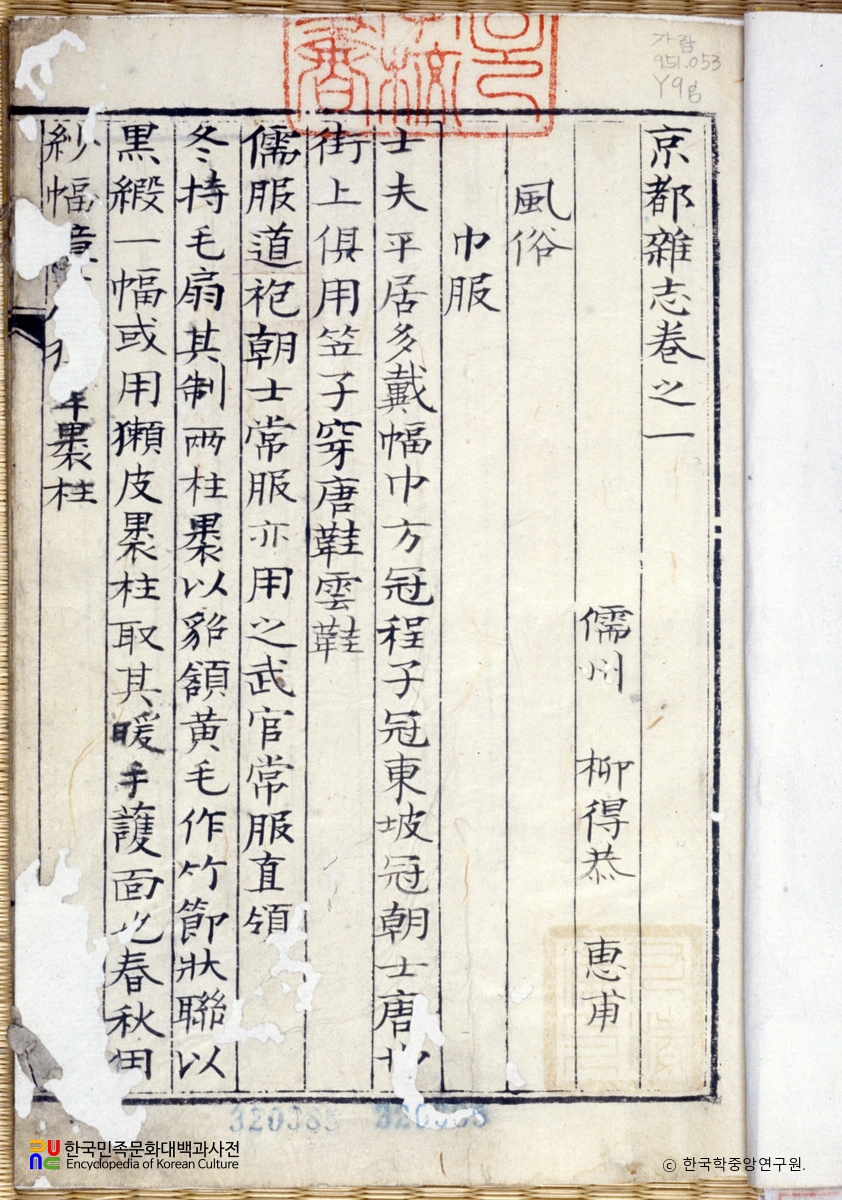 京都雜志卷之一
儒州 柳得恭 惠甫
風俗
巾服
士夫平居多戴幅巾方冠程子冠東坡冠朝士唐巾
街上俱用笠子穿唐鞋雲鞋
儒服道袍朝士常服亦用之武官常服直領
冬持毛扇其制兩柱裹以貂額黃毛作竹節狀聯以
黑緞一幅或用獺皮裹柱取其暖手護面也春秋用
紗幅 裹柱
가람
951.053
Y9g
320385 320385
한국민족문화대백과사전
Encyclopedia of Korean Culture
© 한국학중앙연구원.